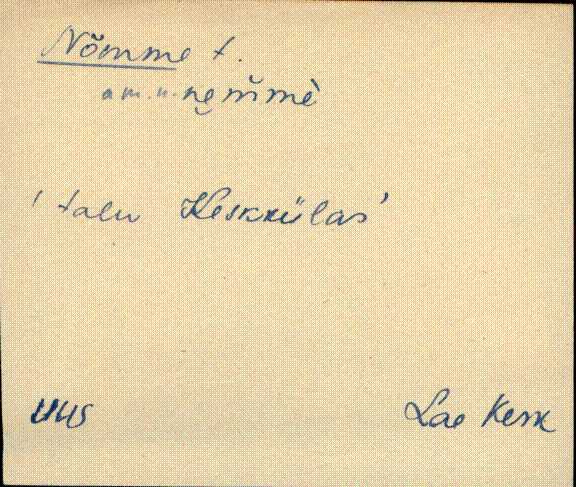 Nõmme t.
am. n. ne̮m̆mè
' talu Keskkülas '
UUS
Lae Kesk